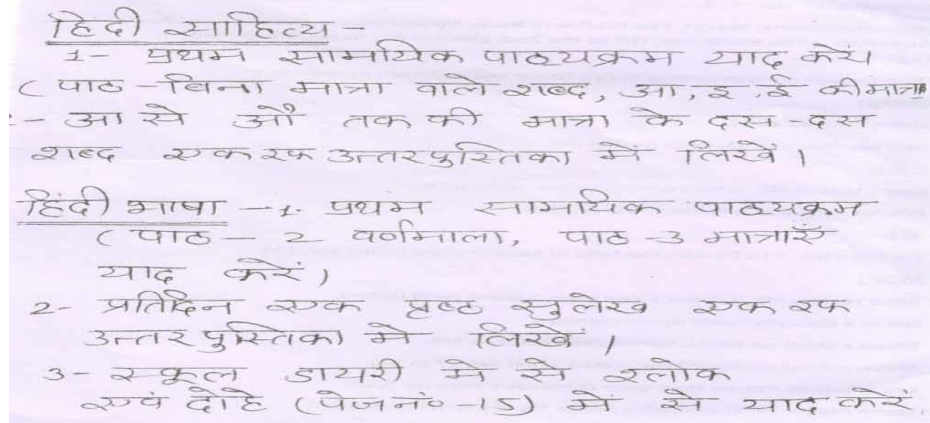 हिंदी साहित्य -
1- प्रथम सामयिक पाठ्यक्रम याद करें
( पाठ - बिना मात्रा वाले शब्द, आ, इ, ई की मात्रा
:- आ से औ तक की मात्रा के दस - दस
शब्द एक रफ उत्तरपुस्तिका में लिखें।
हिंदी भाषा - 1- प्रथम सामयिक पाठ्यक्रम
( पाठ - 2 वर्णमाला, पाठ - 3 मात्राएँ
याद करें)
2- प्रतिदिन एक पृष्ठ सुलेख एक रफ
उत्तरपुस्तिका में लिखें।
3- स्कूल डायरी में से श्लोक
एवं दोहे (पेज नं॰ - 15) में से याद करें